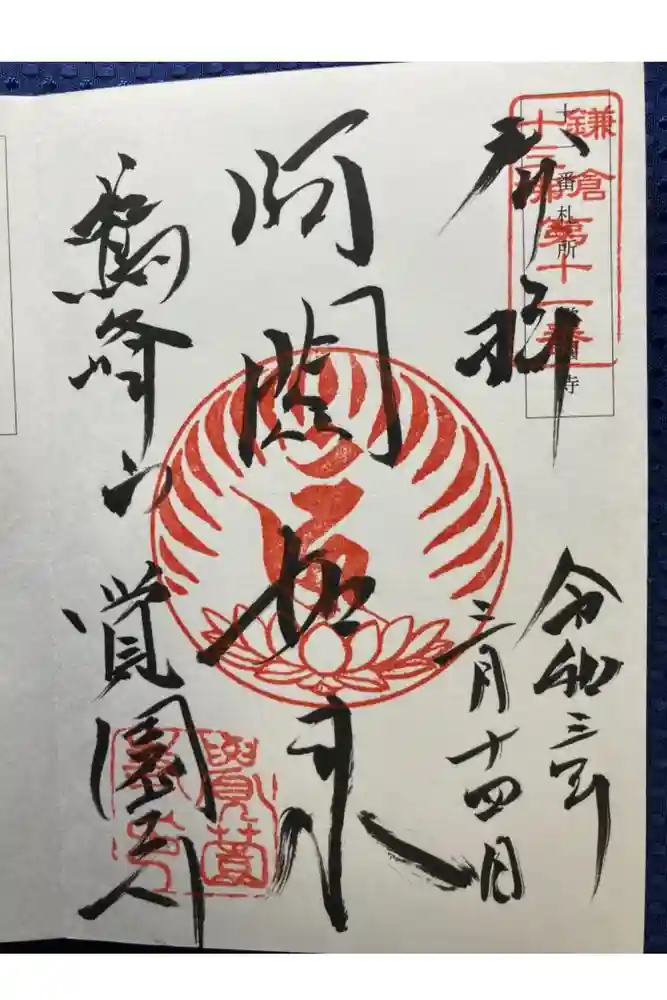 鎌倉
十三佛
第十一番
十一番札所 覚園寺
奉拝
令和三年
三月十四日
阿閦如来
鷲峰山 覚園寺
覺薗寺